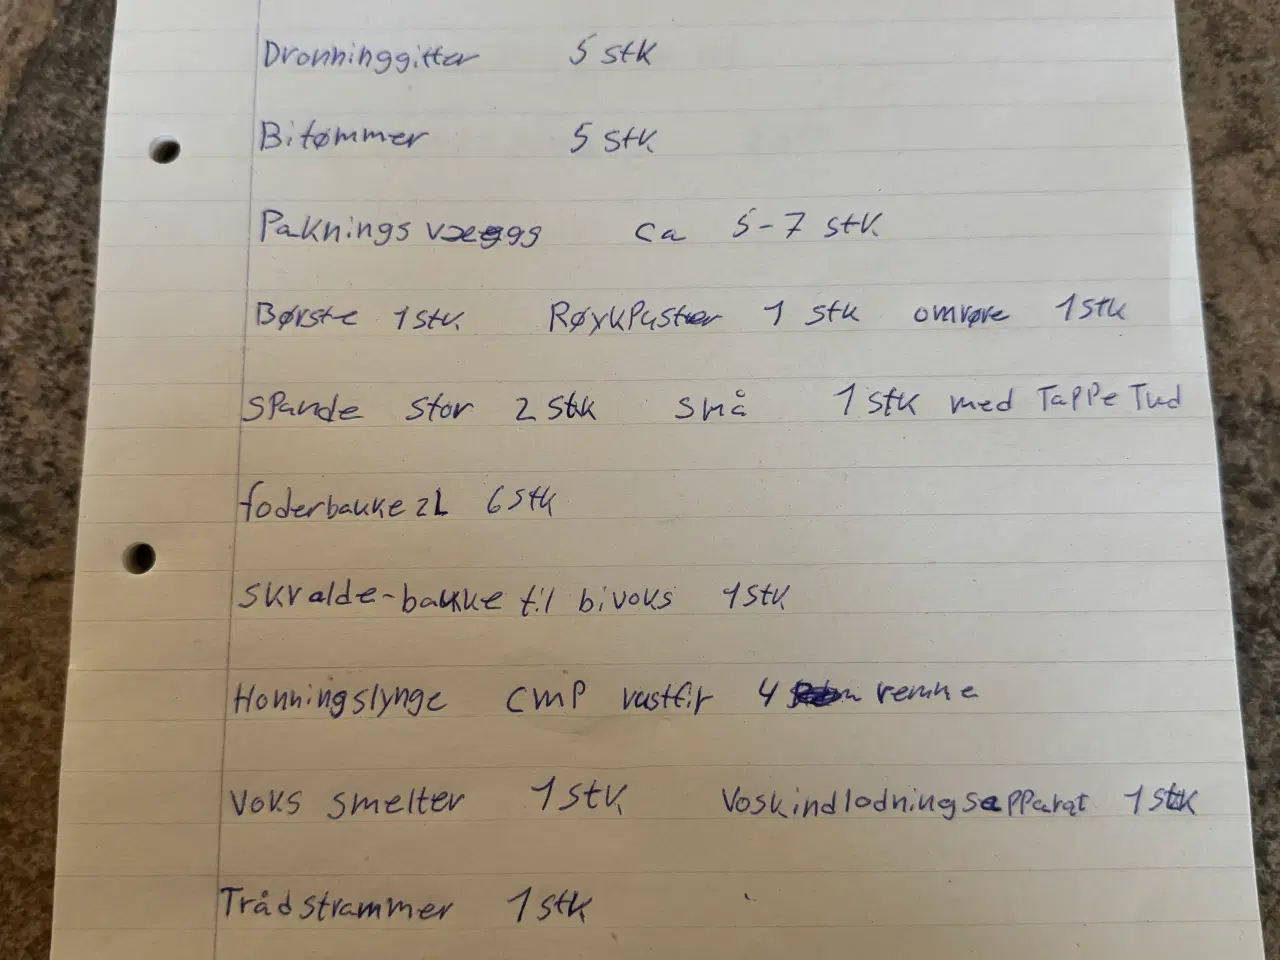 Dronninggitter 5 stk
Bitømmer 5 stk
Paknings væggg ca 5-7 stk
Børste 1 stk Røykpuster 1 stk omrøre 1 stk
Spande stor 2 stk små 1 stk med Tappe Tud
foderbakke 2L 6 stk
skralde-bakke til bivoks 1 stk
Honningslynge CMP rustfir 4 remne
Voks smelter 1 stk Voskindlodningsapparat 1 stk
Trådstrammer 1 stk